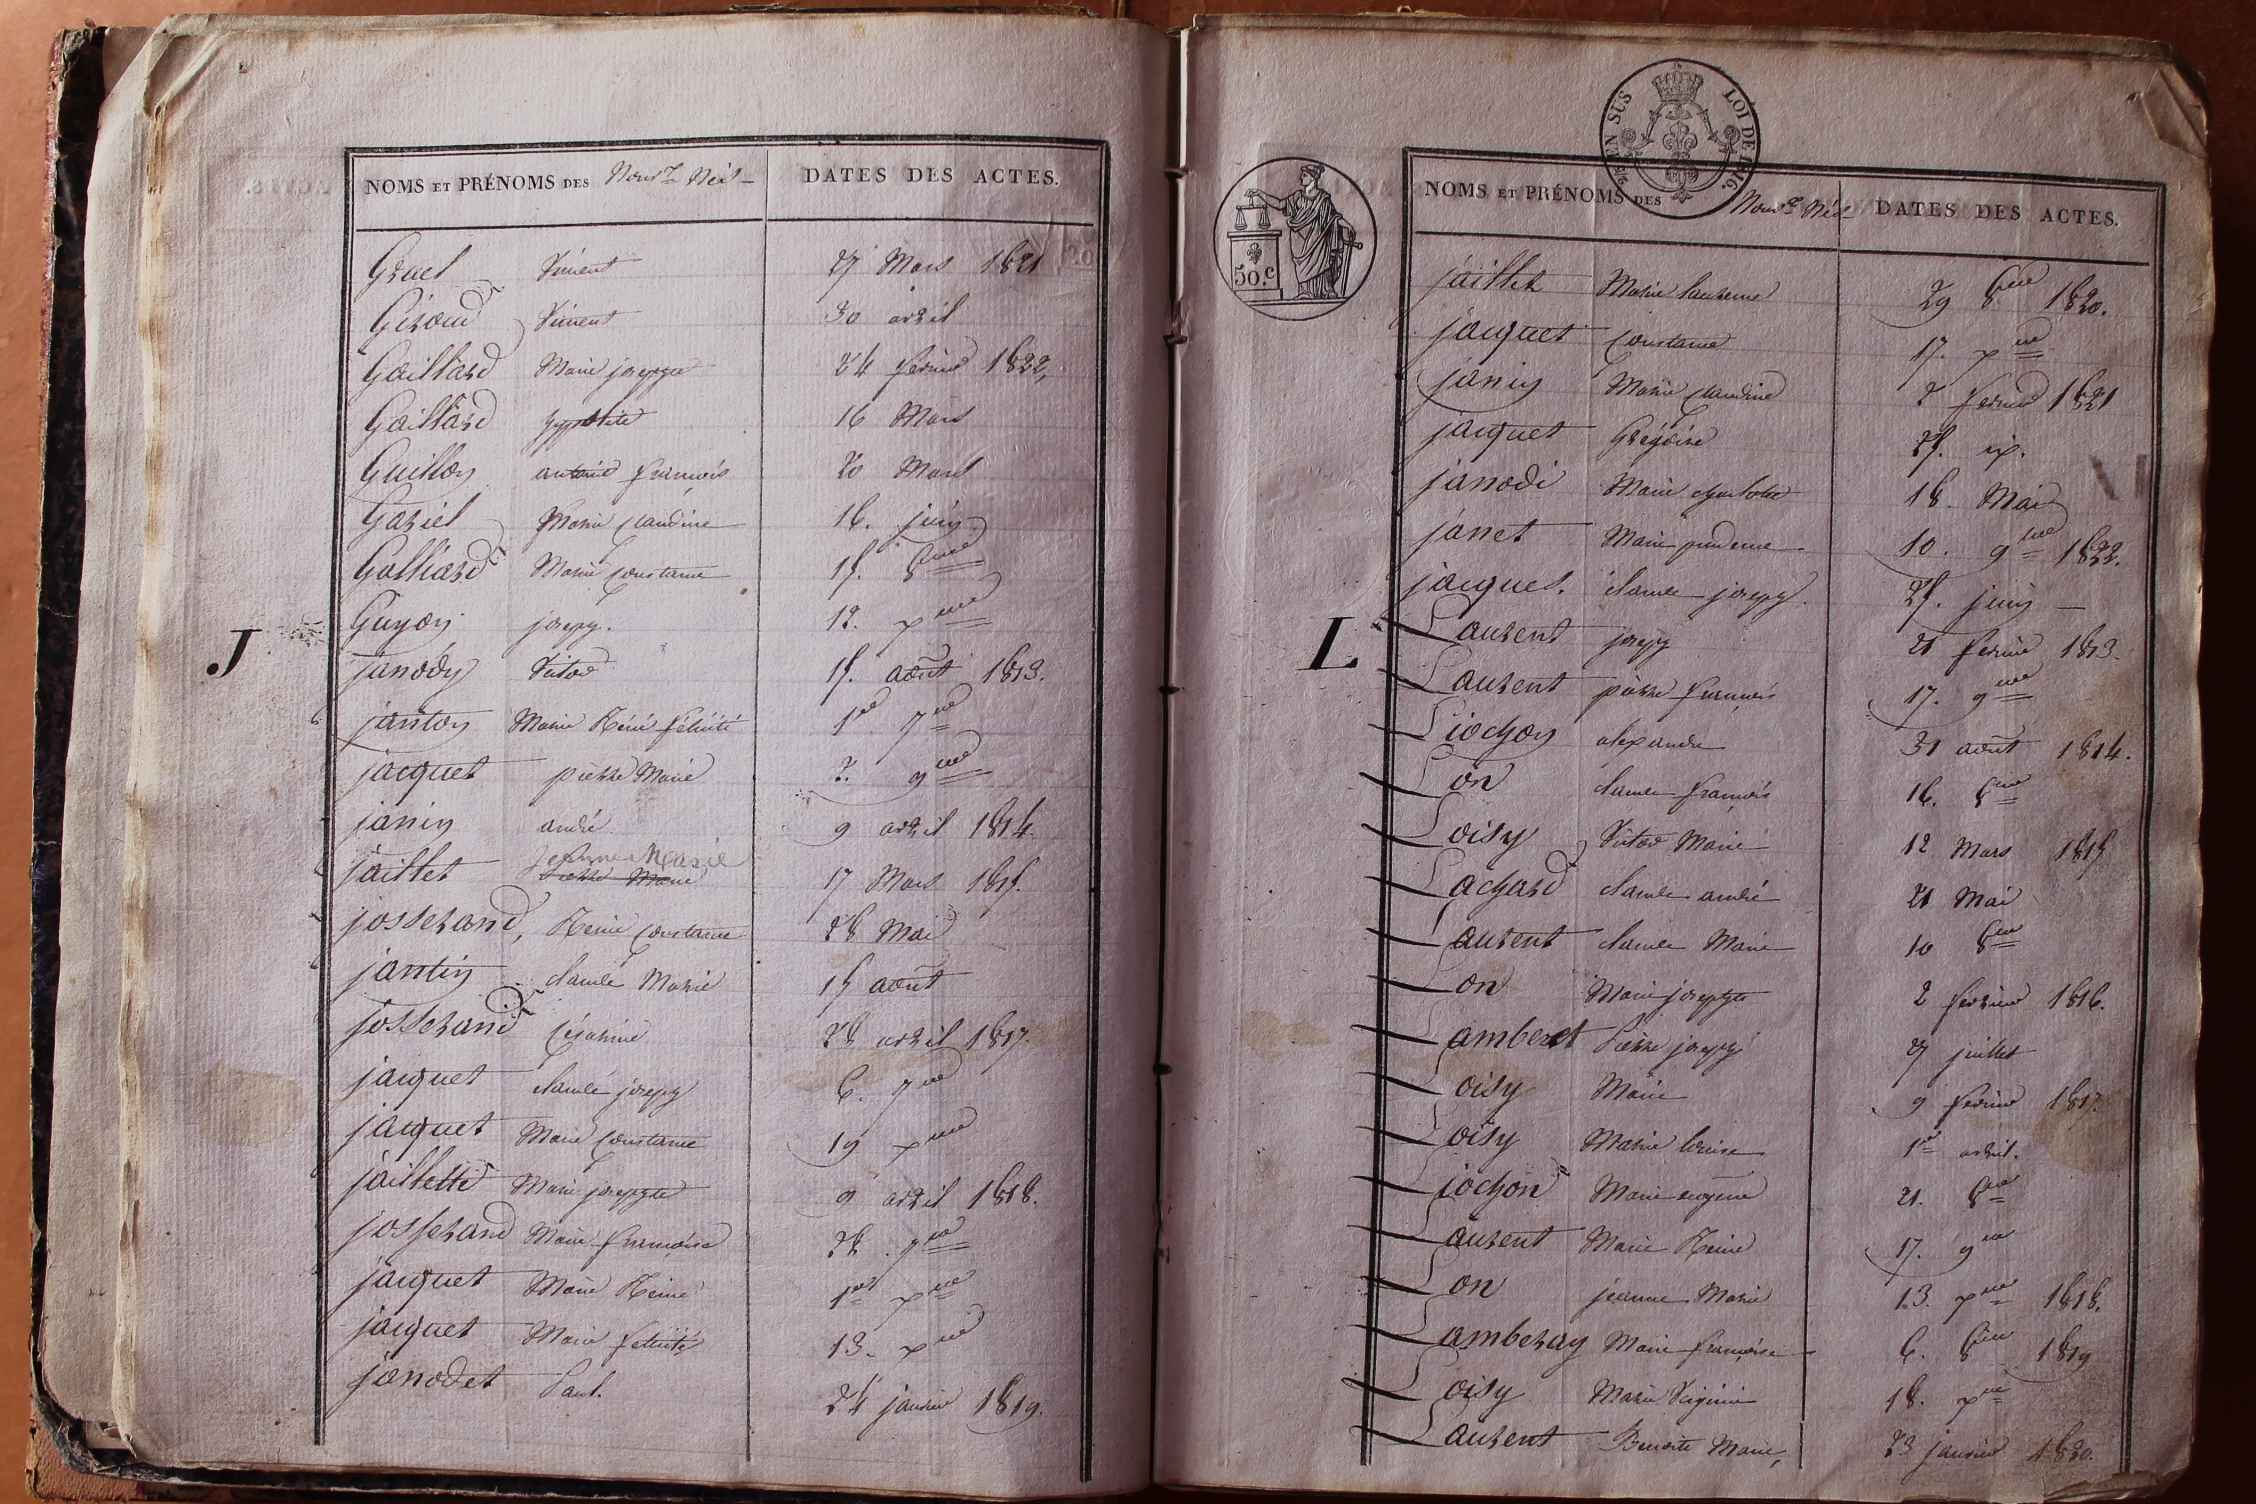 NOMS ET PRÉNOMS DES Nouv.x Nés DATES DES ACTES.
Gruel Vincent 27 Mars 1821
Giroud Vincent 30 avril
Gaillard Marie josephte 24 fevrier 1822,
Gaillard hyppolite 16 Mars
Guillon antoine francois 20 Mars
Gariel Marie claudine 16. juin
Galliard Marie constance 15. 8bre
Guyon joseph. 12. xbre
J
janody Victor 15. août 1813.
janton Marie Réné félicité 1er 7bre
jacquet pierre Marie 2. 9bre
janin andré 9 avril 1814.
jaillet Jeanne Marie 17 Mars 1815.
Pierre Marie
josserand, Reine constance 28 Mai
jantin claude Marie 15 août
josserand Césarine 28 avril 1817.
jacquet claude joseph 6. 7bre
jacquet Marie constance 19 xbre
jaillette Marie josephte 9 avril 1818.
josserand Marie francoise 28. 7bre
jacquet Marie Reine 1er xbre
jacquet Marie felicité 13. xbre
janodet Paul. 24 janvier 1819.
EN SUS LOI DE 1816.
50.c
NOMS ET PRÉNOMS DES Nouv.x Nés DATES DES ACTES.
jaillet Marie laurence 29 8bre 1820.
jacquet Constance 17. xbre
janin Marie claudine 2 fevrier 1821
jacquet Grégoire 25. id.
janodi Marie charlotte 18. Mai
janet Marie prudence 10. 9bre 1822.
jacques. claude joseph. 25. juin
L
Laurent joseph 21 fevrier 1813.
Laurent pierre francois 17. 9bre
Liochon alexandre 31 août 1814.
Lon claude francois 16. 8bre
Loisy Victor Marie 12 Mars 1815
Lachard claude andré 21 Mai
Laurent claude Marie 10 8bre
Lon Marie josephte 2 fevrier 1816.
Lamberet Pierre joseph 27 juillet
Loisy Marie 9 fevrier 1817.
Loisy Marie louise 1er avril.
Liochon Marie eugénie 21. 8bre
Laurent Marie Reine 17. 9bre
Lon jeanne Marie 13. xbre 1818.
Lamberay Marie francoise 6. 8bre 1819
Loisy Marie Virginie 18. xbre
Laurent Benoite Marie, 23 janvier 1820.